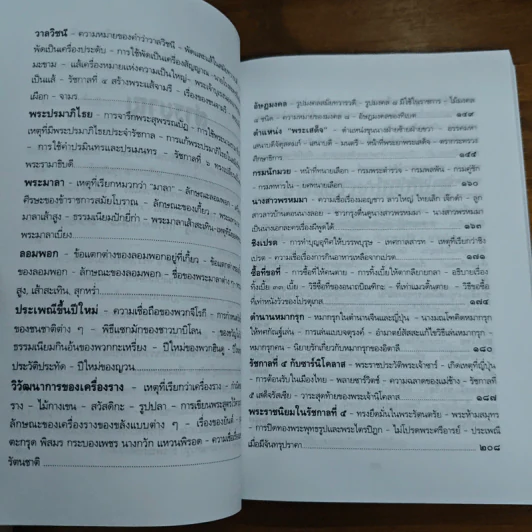 วาลวิชนี - ความหมายของคำว่าวาลวิชนี - พัดและแส้ในสมัย
พัดเป็นเครื่องประดับ - การใช้พัดเป็นเครื่องสัญญาณ
มะขาม - แส้เครื่องหมายแห่งความเป็นใหญ่
เป็นแส้ - รัชกาลที่ ๔ สร้างพระแส้จามรี - เรื่องของขนจามรี
เผือก - จามร
พระปรมาภิไธย - การจารึกพระสุพรรณบัฏ - การใช้พระนาม
เหตุที่มีพระปรมาภิไธยประจำรัชกาล - การแก้พระปรมาภิไธย
- การใช้คำปรมินทรและปรเมนทร - รัชกาลที่ ๖ ทรงเปลี่ยน
พระรามาธิบดี
พระมาลา - เหตุที่เรียกหมวกว่า "มาลา" - ลักษณะของพระมาลา
ศีรษะของข้าราชการสมัยโบราณ - ลักษณะของเกี้ยว - พระมาลา
มาลาเส้าสูง - ธรรมเนียมปักยี่ก่า - พระมาลาเส้าสะเทิน
พระมาลาเบี่ยง
ลอมพอก - ข้อแตกต่างของลอมพอกอยู่ที่เกี้ยว - ข้อแตกต่าง
ของลอมพอก - ลักษณะของลอมพอก - ชื่อของพระมาลาต่าง ๆ
สูง, เส้าสะเทิน, ลูกหว่า
ประเพณีขึ้นปีใหม่ - ความเชื่อถือของพวกจีโรกี - การ
ของชนชาติต่าง ๆ - พิธีแซกมักของชาวบาบิโลน - ของขวัญ
ธรรมเนียมกินอ้นของพวกกะเหรี่ยง - ปีใหม่ของพวกฮินดู
ประวัติประทัด - ปีใหม่ของญวน
วิวัฒนาการของเครื่องราง - เหตุที่เรียกว่าเครื่องราง
ราง - ไม้กางเขน - สวัสดิกะ - รูปปลา - การเขียนพระสูตร
ลักษณะของเครื่องรางของขลังแบบต่าง ๆ - เรื่องของยันต์
ตะกรุด พิสมร กระบองเพชร นางกวัก แหวนพิรอด - ความเชื่อ
รัตนชาติ
อัษฎมงคล - รูปมงคลสมัยทวารวดี - รูปมงคล ๘ มีใช้ในราชการ - ไม้มงคล
๙ ชนิด - ความหมายของมงคล ๘ - อัษฎมงคลของทิเบต ๑๔๙
ตำแหน่ง "พระเสด็จ" - ตำแหน่งขุนนางฝ่ายซ้ายฝ่ายขวา - อรรคมหา
เสนาบดีจัตุสดมภ์ - เสนาบดี - มนตรี - หน้าที่พระยาพระเสด็จ - ตรากระทรวง
ศึกษาธิการ ๑๕๕
กรมนักมวย - หน้าที่ทนายเลือก - กรมพระตำรวจ - กรมพลพัน - กรมคู่ชก
- กรมทหารใน - ยศทนายเลือก ๑๖๐
นางสาวพรหมมา - ความเชื่อเรื่องมอญขาว ลาวใหญ่ ไทยเล็ก เจ๊กดำ - ลูก
สาวลาวบ้านดอนนางลอย - ชาวกรุงตื่นดูนางสาวพรหมมา - นางสาวพรหมมา
เป็นนางเอกละครเรื่องมีผู้พูดได้ ๑๖๓
ชิงเปรต - การทำบุญอุทิศให้บรรพบุรุษ - เทศกาลสารท - เหตุที่เรียกว่าชิง
เปรต - ความเชื่อเรื่องการกินอาหารเหลือจากเปรต ๑๗๑
ซื้อที่ขอที่ - การซื้อที่ให้คนตาย - การทิ้งเบี้ยให้ตากลียายกลา - อธิบายเรื่อง
ทิ้งเบี้ย ๓๓ เบี้ย - วิธีซื้อที่ของอนาถบิณฑิกะ - ที่เท่าแมวดิ้นตาย - วิธีขอซื้อ
ที่เท่าหนังวัวของโปรตุเกส ๑๗๔
ตำนานหมากรุก - หมากรุกในตำนานจีนและญี่ปุ่น - นางมณโฑคิดหมากรุก
ให้ทศกัณฐ์เล่น - การเล่นแบบจตุรงค์ - อำมาตย์สัสสะแก้ไขวิธีเล่นหมากรุก -
หมากรุกคน - นิยายรักเกี่ยวกับหมากรุกของอิตาลี ๑๘๐
รัชกาลที่ ๕ กับซาร์นิโคลาส - พระราชประวัติพระเจ้าซาร์ - เกิดเหตุที่ญี่ปุ่น
- การต้อนรับในเมืองไทย - พลายซาร์วิตช์ - ความฉลาดของแม่ช้าง - รัชกาลที่
๕ เสด็จรัสเซีย - วาระสุดท้ายของพระเจ้านิโคลาส ๑๘๗
พระราชนิยมในรัชกาลที่ ๕ - ทรงยึดมั่นในพระรัตนตรัย - พระห้ามสมุทร
- การปิดทองพระพุทธรูปและพระไตรปิฎก - ไม่โปรดพระศรีอารย์ - ประเพณี
เมื่อมีจันทรุปราคา ๒๐๘